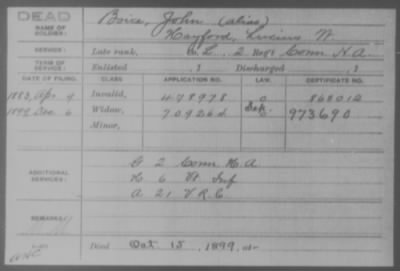 DEAD
NAME OF SOLDIER: Boice, John (alias)
Hayford, Lucius W.
SERVICE: Late rank, L, 2 Reg't Conn H.A.
TERM OF SERVICE: Enlisted , 1 Discharged , 1
DATE OF FILING. CLASS APPLICATION NO. LAW. CERTIFICATE NO.
1883, Apr. 9 Invalid, 478978
1899, Dec 6 Widow, 973690
Minor,
ADDITIONAL SERVICES: G 2 Conn H.A
K 6 Vt. Inf
A 21 V.R.C.
REMARKS:
Died Oct 15, 1899, at